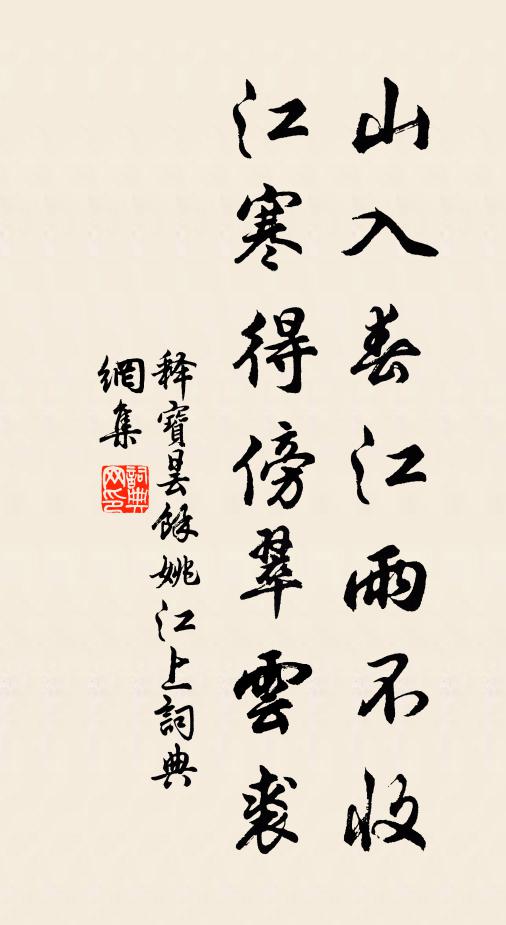 山入春江雨不收
江寒得傍翠雲裘
释寶昙餘姚江上詞典
網集
詞典網印